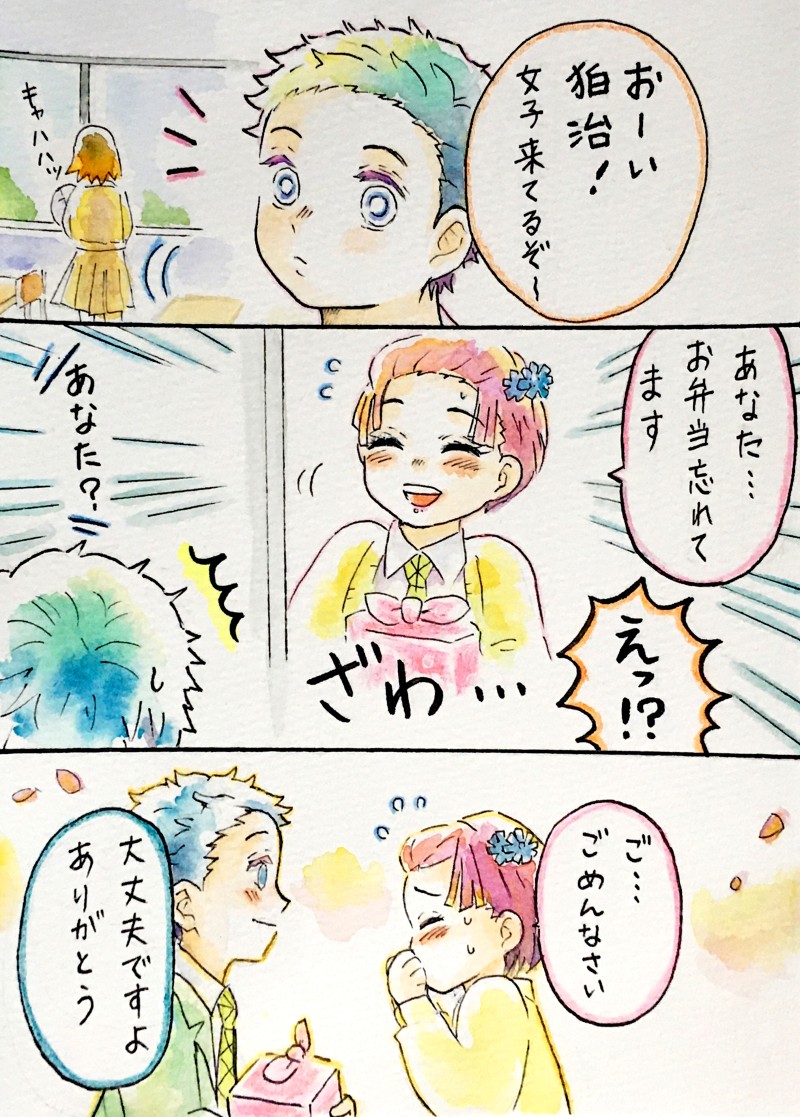 おーい
狛治！
女子来てるぞ〜
キャハハッ
あなた…
お弁当忘れて
ます
えっ!?
ざわ…
あなた？
ご…
ごめんなさい
大丈夫ですよ
ありがとう